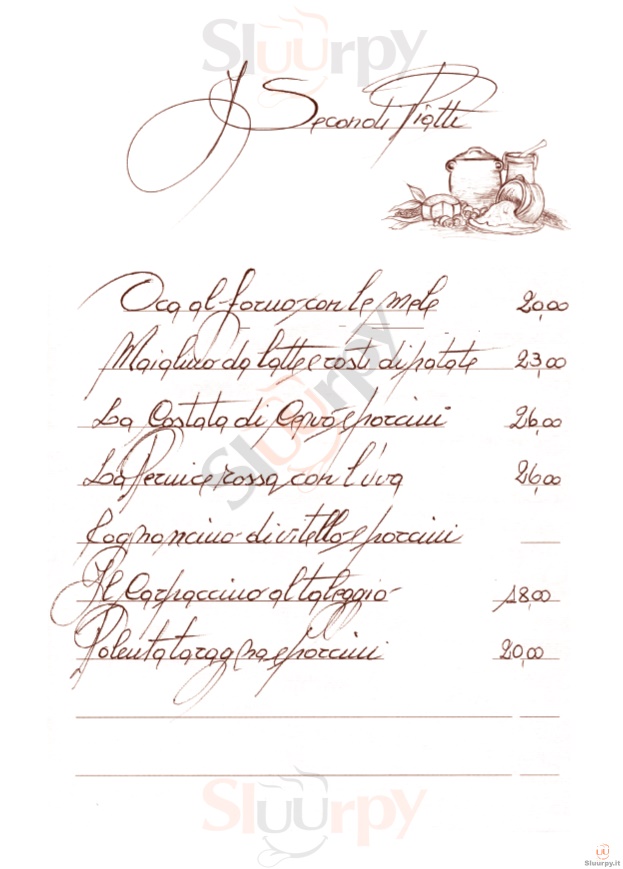 Sluurpy
I Secondi Piatti
Oca al forno con le mele 20,00
Maialino da latte e rosti di patate 23,00
La Costata di Cervo e porcini 26,00
La Pernice rossa con l'uva 26,00
Rognoncino di vitello e porcini
Il Carpaccino al taleggio 18,00
Polenta taragna e porcini 20,00
Sluurpy
Sluurpy
Sluurpy.it